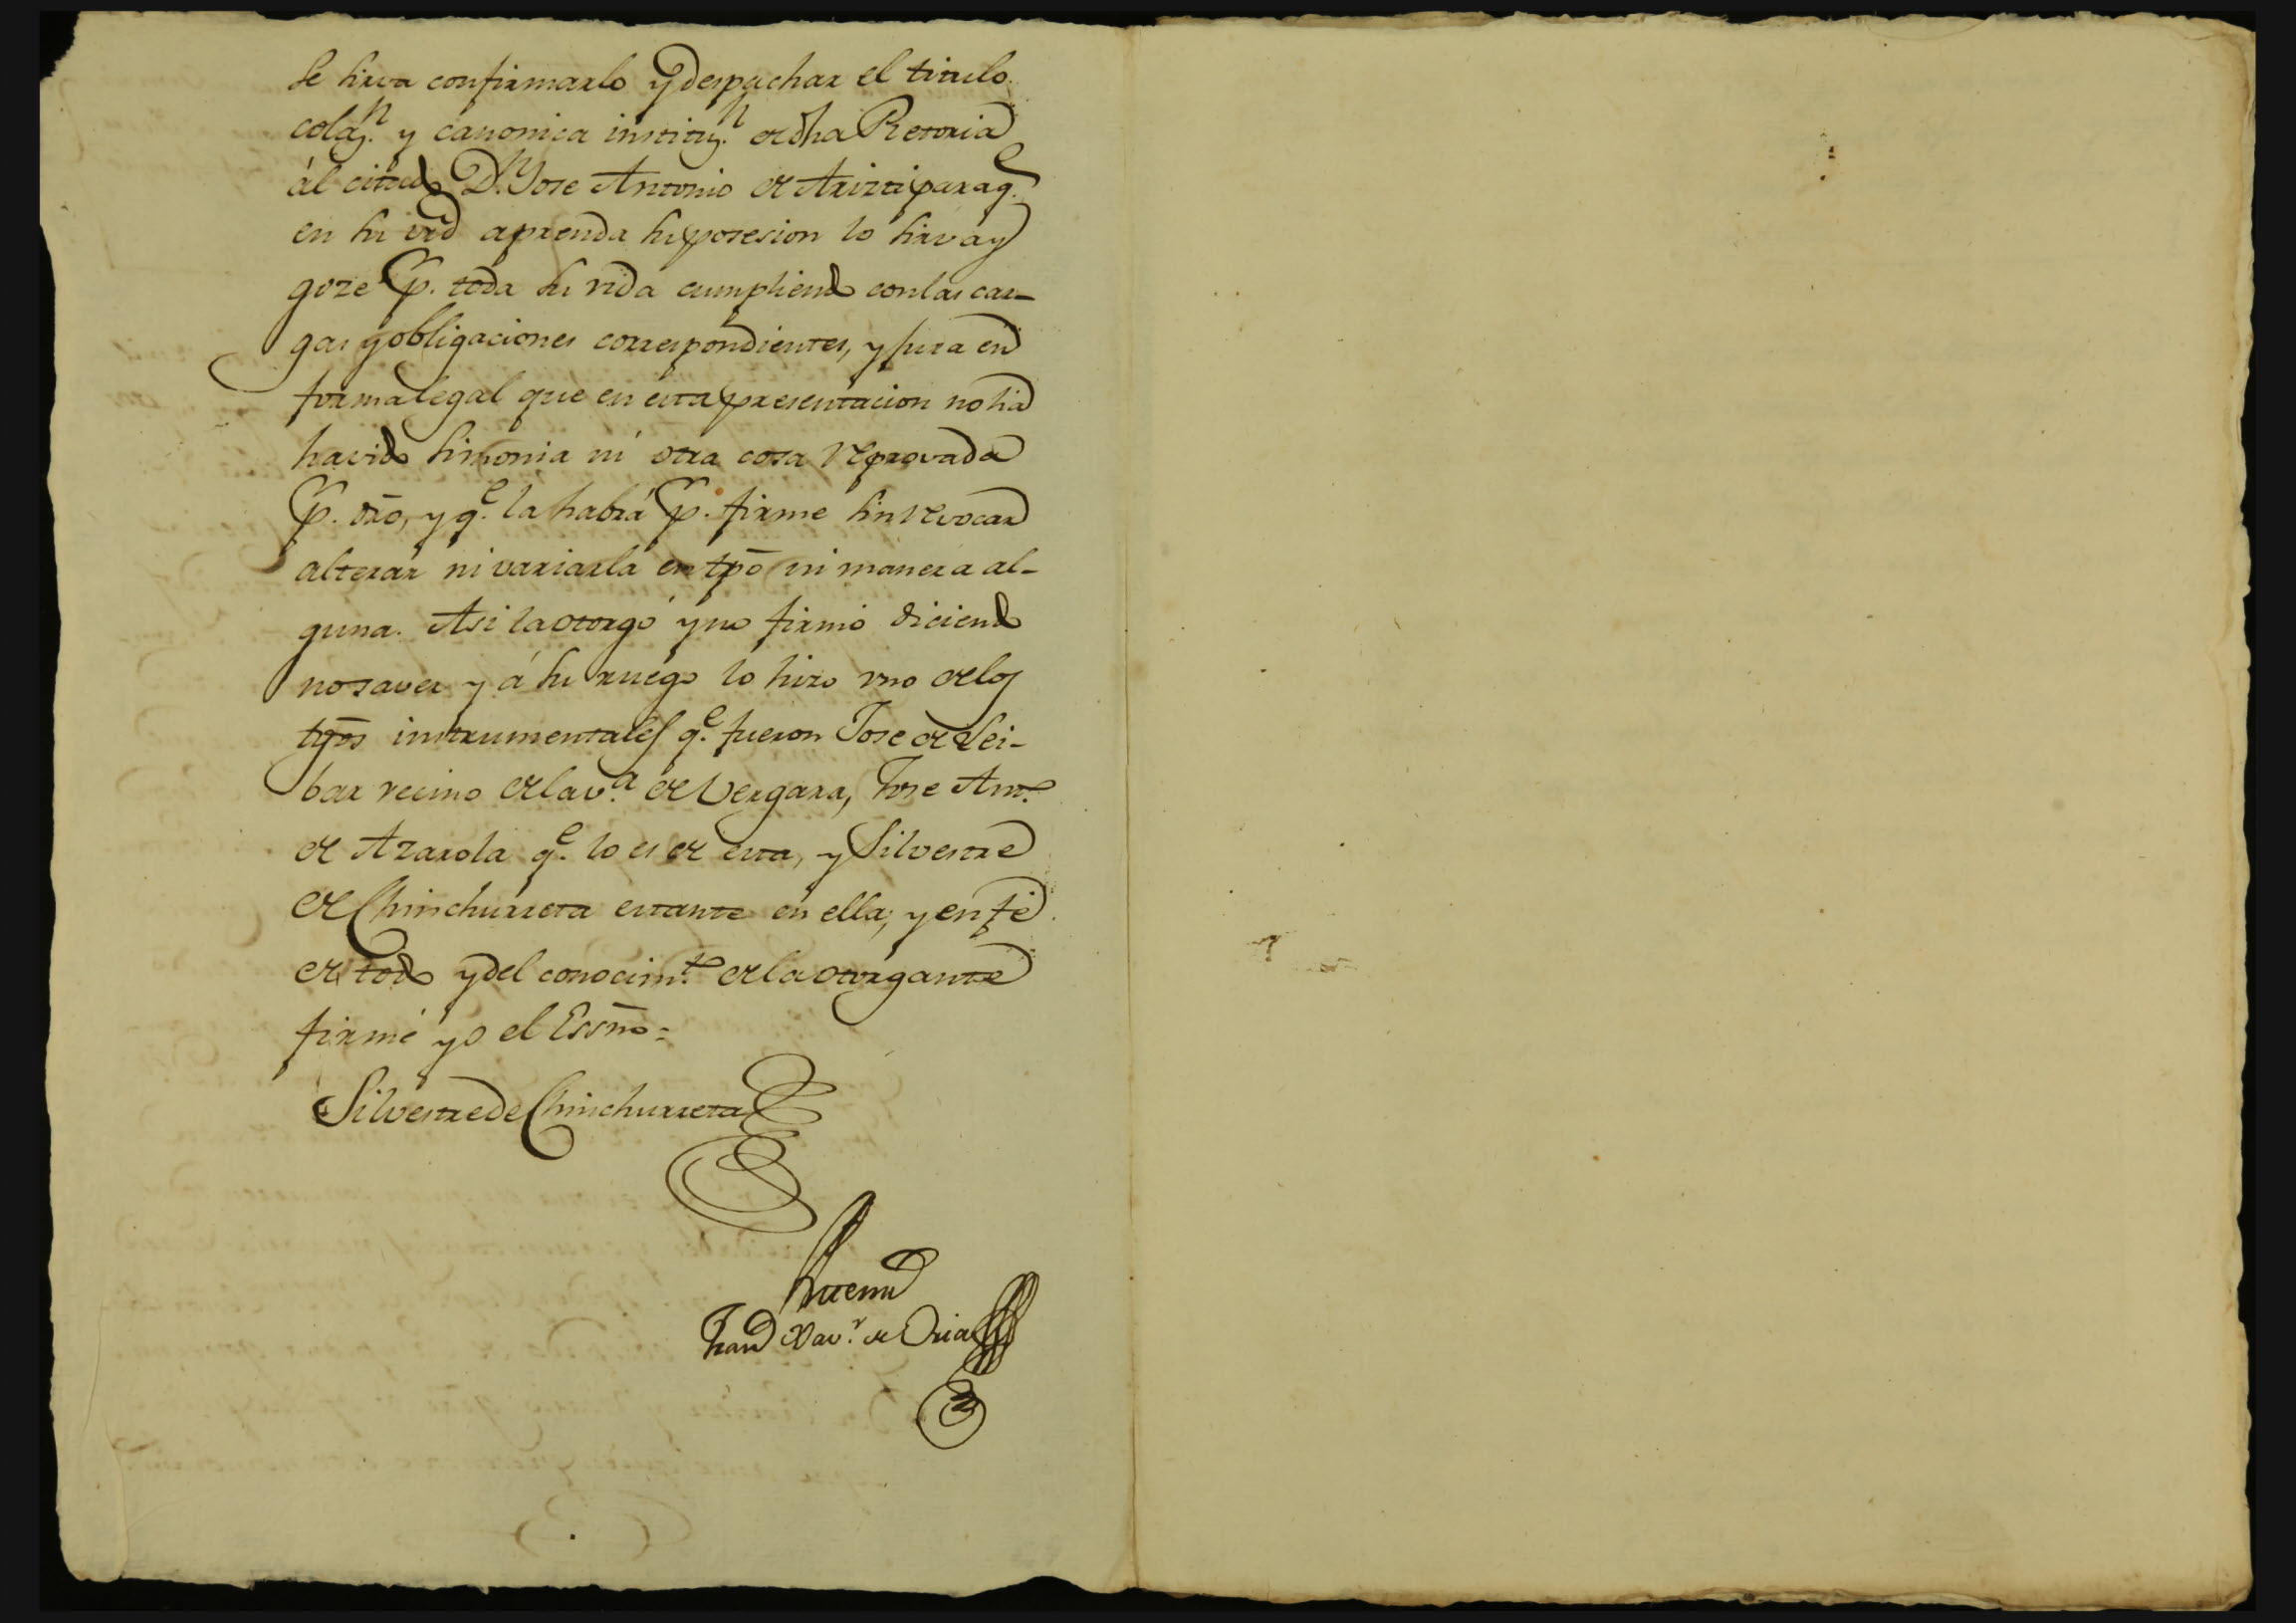 se sirva confirmarlo y despachar el titulo
colaz.n y canonica instituz.n de dha Retoria
ál citado D.n Jose Antonio de Arizti para q.e
en su vrd aprenda su posesion lo sirva y
goze p.r toda su vida cumpliendo con las car-
gas y obligaciones correspondientes, y jura en
forma legal que en esta presentacion no ha
havido simonia ni otra cosa reprovada
p.r dro, y q.e la habrá p.r firme sin revocar
alterar ni variarla en tpõ ni manera al-
guna. Asi la otorgó y no firmó diciendo
no saver y á su ruego lo hizo vno de los
tgõs instrumentales q.e fueron Jose de Lei-
bar vecino de la v.a de Vergara, Jose Ant.o
de Azarola q.e lo es de esta, y Silvestre
de Chinchurreta estante en ella; y en fé
de todo y del conocim.to de la otorgante
firmé yo el Essño=
Silvestre de Chinchurreta
Antemi
Fran Xav.r de Oria